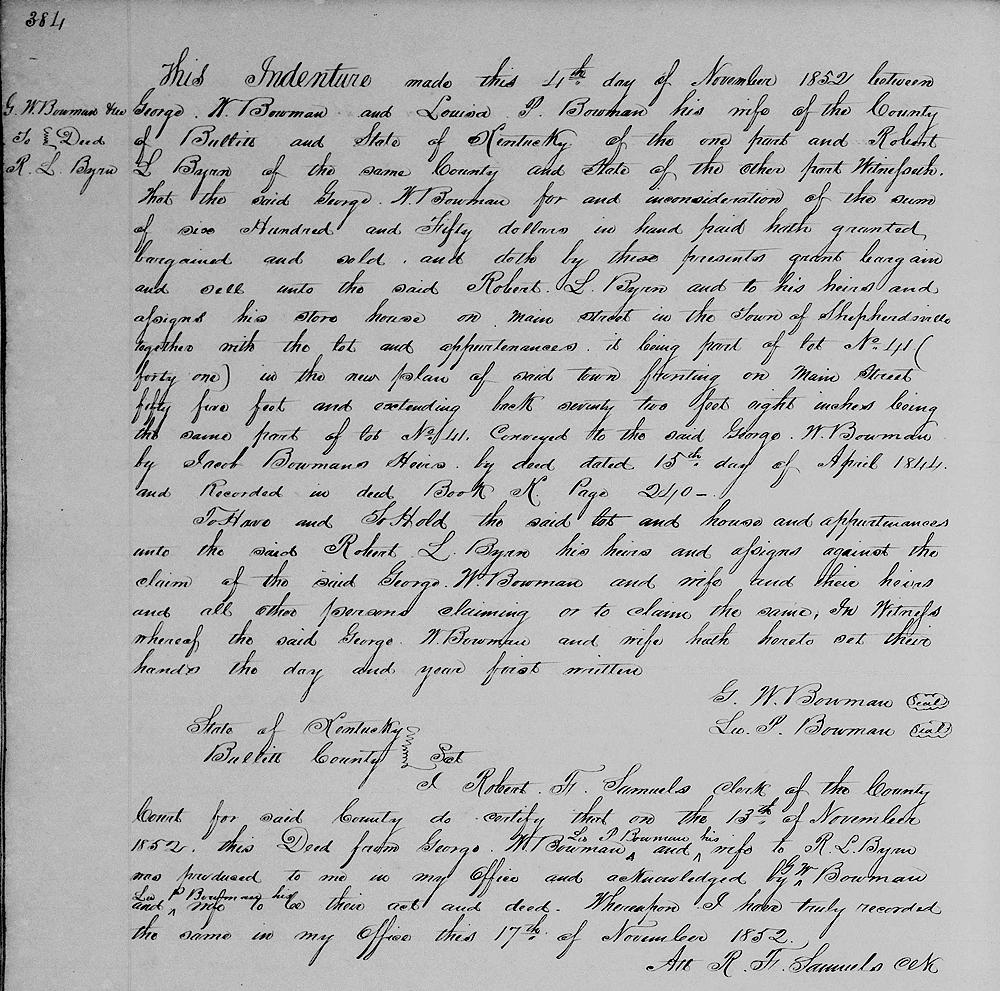 384
This Indenture made this 4th day of November 1852 between
G. W. Bowman &c George. W. Bowman and Louisa P. Bowman his wife of the County
To } Deed of Bullitt and State of Kentucky of the one part and Robert
R. L. Byrn L Byrn of the same County and State of the other part Witnesseth.
That the said George. W. Bowman for and inconsideration of the sum
of six Hundred and Fifty dollars in hand paid hath granted
bargained and sold. and doth by these presents grant bargain
and sell unto the said Robert. L. Byrn and to his heirs and
assigns his store house on main street in the Town of Shepherdsville
together with the lot and appurtenances. it being part of lot No. 41 (
forty one) in the new plan of said town fronting on Main Street
fifty five feet and extending back seventy two feet eight inches being
the same part of lot No. 41. Conveyed to the said George. W. Bowman
by Jacob Bowmans Heirs. by deed dated 15th day of April 1844.
and Recorded in deed Book K. Page 240-.
To Have and To Hold the said lot and house and appurtenances
unto the said Robert. L. Byrn his heirs and assigns against the
claim of the said George. W. Bowman and wife and their heirs
and all other persons claiming or to claim the same, In Witness
whereof the said George. W. Bowman and wife hath hereto set their
hands the day and year first written
G. W. Bowman (Seal)
Lu. P. Bowman (Seal)
State of Kentucky
Bullitt County } Sct
I Robert. F. Samuels clerk of the County
Court for said County do certify that on the 13th of November
Lu P Bowman his
1852. this Deed from George. W. Bowman ^ and ^ wife to R. L. Byrn
was produced to me in my Office and acknowledged by G W ^ Bowman
Lu P Bowman his
and ^ wife to be their act and deed. Whereupon I have truly recorded
the same in my Office this 17th of November 1852.
Att R. F. Samuels Clk